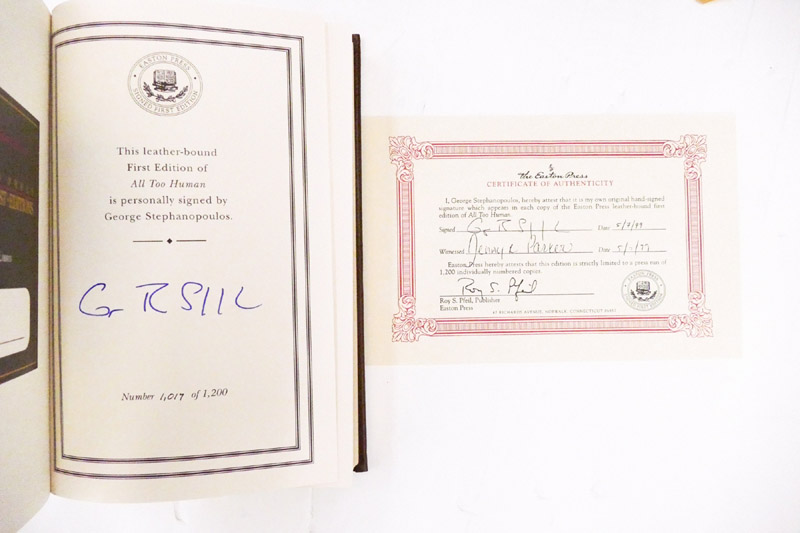 EASTON PRESS
SIGNED FIRST EDITION
This leather-bound
First Edition of
All Too Human
is personally signed by
George Stephanopoulos.
Number 1,017 of 1,200
The Easton Press
CERTIFICATE OF AUTHENTICITY
I, George Stephanopoulos, hereby attest that it is my own original hand-signed
signature which appears in each copy of the Easton Press leather-bound first
edition of All Too Human.
Signed Date 5/7/99
Witnessed Date
Easton Press hereby attests that this edition is strictly limited to a press run of
1,200 individually numbered copies.
Roy S. Pfeil
Roy S. Pfeil, Publisher
Easton Press
47 RICHARDS AVENUE, NORWALK, CONNECTICUT 06857